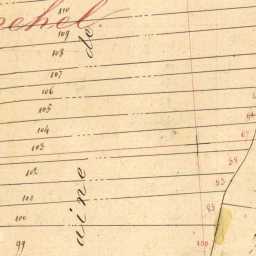 110
109
108
107
106
105
104
103
102
101
100
99
chel.
de
aine
67
58
53
53
100